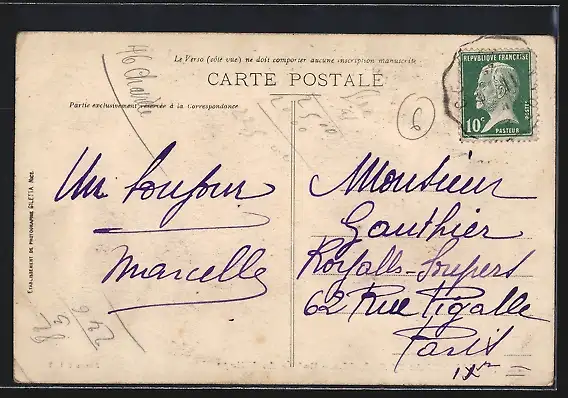 Le Verso (côté vue) ne doit comporter aucune inscription manuscrite
CARTE POSTALE
Partie exclusivement réservée à la Correspondance
RÉPUBLIQUE FRANÇAISE
POSTES
10c
PASTEUR
ÉTABLISSEMENT DE PHOTOGRAPHIE GILETTA, NICE.
Un bonjour
Marcelle
Monsieur
Gauthier
Royalls-Soupers
62 Rue Pigalle
Paris
IXe